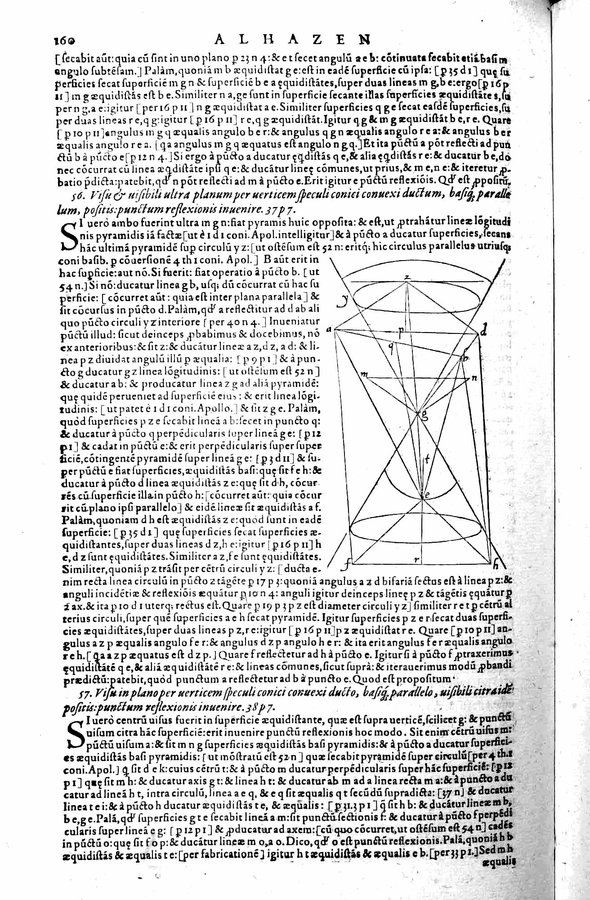 160 ALHAZEN
[secabit aūt: quia cū sint in uno plano p 23 n 4: & e t secet angulū a e b: cōtinuata secabit etiā basim m
angulo subtēsam.] Palàm, quoniā m b æquidistat g e: est in eadē superficie cū ipsa: [p 35 d 1] quę su
perficies secat superficiē m g n & superficiē b e a ęquidistātes, super duas lineas m g, b e: ergo [p 16 p
11] m g æquidistās est b e. Similiter n a, g e sunt in superficie secante illas superficies æquidistātes, su
per n g, a e: igitur [per 16 p 11] n g æquidistat a e. Similiter superficies q g e secat easdē superficies, su
per duas lineas r e, q g: igitur [p 16 p 11] r e, q g æquidistāt. Igitur q g & m g æquidistāt b e, r e. Quare
[p 10 p 11] angulus m g q æqualis angulo b e r: & angulus q g n æqualis angulo r e a: & angulus b e r
æqualis angulo r e a. [qa angulus m g q æquatus est angulo n g q.] Et ita pūctū a pōt reflecti ad pun
ctū b à pūcto e [p 12 n 4.] Si ergo à pūcto a ducatur ęqdistās q e, & alia ęqdistās r e: & ducatur b e, do
nec cōcurrat cū linea æqdistāte ipsi q e: & ducātur lineę cōmunes, ut prius, & m e, n e: & iteretur p-
batio pdicta: patebit, qd' n pōt reflecti ad m à pūcto e. Erit igitur e pūctū reflexiōis. Qd' est ppositū.
56. Visu & uisibili ultra planum per uerticem speculi conici conuexi ductum, basiq; paralle
lum, positis: punctum reflexionis inuenire. 37 p 7.
SI uero ambo fuerint ultra m g n: fiat pyramis huic opposita: & est, ut ptrahātur lineæ lōgitudi
nis pyramidis iā factæ [ut è 1 d 1 coni. Apol. intelligitur] & à pūcto a ducatur superficies, secans
hāc ultimā pyramidē sup circulū y z: [ut ostēsum est 52 n: eritq; hic circulus parallelus utriusq;
coni basib. p cōuersionē 4 th 1 coni. Apol.] B aūt erit in
hac supficie: aut nō. Si fuerit: fiat operatio à pūcto b. [ut
54 n] Si nō: ducatur linea g b, usq; dū cōcurrat cū hac su
perficie: [cōcurret aūt: quia est inter plana parallela] &
sit cōcursus in pūcto d. Palàm, qd' a reflectitur ad d ab ali
quo pūcto circuli y z interiore [per 40 n 4.] Inueniatur
pūctū illud: sicut deinceps pbabimus & docebimus, nō
ex anterioribus: & sit z: & ducātur lineæ a z, d z, a d: & li-
nea p z diuidat angulū illū p æqualia: [p 9 p 1] & à pun-
cto g ducatur g z linea lōgitudinis: [ut ostēsum est 52 n]
& ducatur a b: & producatur linea z g ad aliā pyramidē:
quę quidē perueniet ad superficiē eius: & erit linea lōgi-
tudinis: [ut patet è 1 d 1 coni. Apollo.] & sit z g e. Palàm,
quòd superficies p z e secabit lineā a b: secet in puncto q:
& ducatur à pūcto q perpēdicularis super lineā g e: [p 12
p 1] & cadat in pūctū e: & erit perpēdicularis super super
ficiē, cōtingentē pyramidē super lineā g e: [p 3 d 11] & su-
per pūctū e fiat superficies, æquidistās basi: quę sit f e h: &
ducatur à pūcto d linea æquidistās z e: quę sit d h, cōcur-
rēs cū superficie illa in pūcto h: [cōcurret aūt: quia cōcur
rit cū plano ipsi parallelo] & eidē lineæ sit æquidistās a f.
Palàm, quoniam d h est æquidistās z e: quod sunt in eadē
superficie: [p 35 d 1] quę superficies secat superficies æ-
quidistantes, super duas lineas d z, h e: igitur [p 16 p 11] h
e, d z sunt ęquidistātes. Similiter a z, f e sunt ęquidistātes.
Similiter, quoniā p z trāsit per cētrū circuli y z: [ducta e-
nim recta linea circulū in pūcto z tāgēte p 17 p 3: quoniā angulus a z d bifariā sectus est à linea p z: &
anguli incidētiæ & reflexiōis æquātur p 10 n 4: anguli igitur deinceps lineę p z & tāgētis ęquātur p
2 ax. & ita p 10 d 1 uterq; rectus est. Quare p 19 p 3 p z est diameter circuli y z] similiter r e t p cētrū al
terius circuli, super quē superficies a e h secat pyramidē. Igitur superficies p z e r secat duas superfi-
cies æquidistātes, super duas lineas p z, r e: igitur [p 16 p 11] p z æquidistat r e. Quare [p 10 p 11] an-
gulus a z p æqualis angulo f e r: & angulus d z p angulo h e r: & ita erit angulus f e r æqualis angulo
r e h. [qa a z p æquatus est d z p.] Quare f reflectetur ad h à pucto e. Igitur si à pūcto f ptraxerimus
ęquidistātē q e, & aliā æquidistātē r e: & lineas cōmunes, sicut suprà: & iterauerimus modū pbandi
prædictū: patebit, quòd punctum a reflectetur ad b à puncto e. Quod est propositum.
57. Visu in plano per uerticem speculi conici conuexi ducto, basiq; parallelo, uisibili citra idē
positis: punctum reflexionis inuenire. 38 p 7.
SI uero centrū uisus fuerit in superficie æquidistante, quæ est supra uerticē, scilicet g: & punctū
uisum citra hāc superficiē: erit inuenire punctū reflexionis hoc modo. Sit enim cētrū uisus m:
pūctū uisum a: & sit m n g superficies æquidistās basi pyramidis: & à pūcto a ducatur superfici-
es æquidistās basi pyramidis: [ut mōstratū est 52 n] quæ secabit pyramidē super circulū [per 4 th. 1
coni. Apol.] q sit d e k: cuius cētrū t: & à pūcto m ducatur perpēdicularis super hāc superficiē: [p 11
p 1] quę sit m h: & ducatur axis g t: & linea h t: & ducatur ab m ad a linea recta m a: & à puncto a du
catur ad lineā h t, intra circulū, linea a e q, & e q sit æqualis q t secūdū supradicta: [37 n] & ducatur
linea t e i: & à pūcto h ducatur æquidistās t e, & æqualis: [p 31.3 p 1] q sit h b: & ducātur lineæ m b,
b e, g e. Palā, qd' superficies g t e secabit lineā a m: sit punctū sectionis f: & ducatur à pūcto f perpēdi
cularis super lineā e g: [p 12 p 1] & pducatur ad axem: [cū quo cōcurret, ut ostēsum est 54 n] cadēs
in pūctū o: quę sit f o p: & ducātur lineæ m o, a o. Dico, qd' o est punctū reflexionis. Palā, quoniā h b
æquidistās & æqualis t e: [per fabricationē] igitur h t æquidistās & æqualis e b. [per 33 p 1.] Sed m h
æqualis
z
y
a
p
d
q
b
m
n
g
t
e
f
r
h